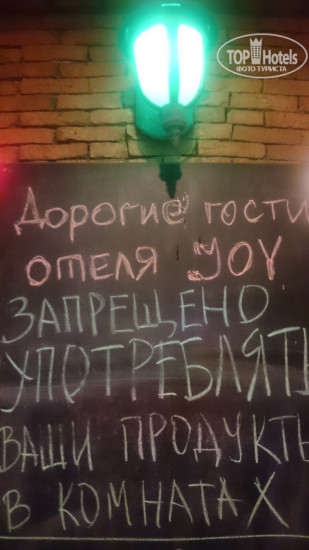 TOP Hotels
ФОТО ТУРИСТА
Дорогие гости
отеля JOY
ЗАПРЕЩЕНО
УПОТРЕБЛЯТЬ
ВАШИ ПРОДУКТЫ
В КОМНАТАХ